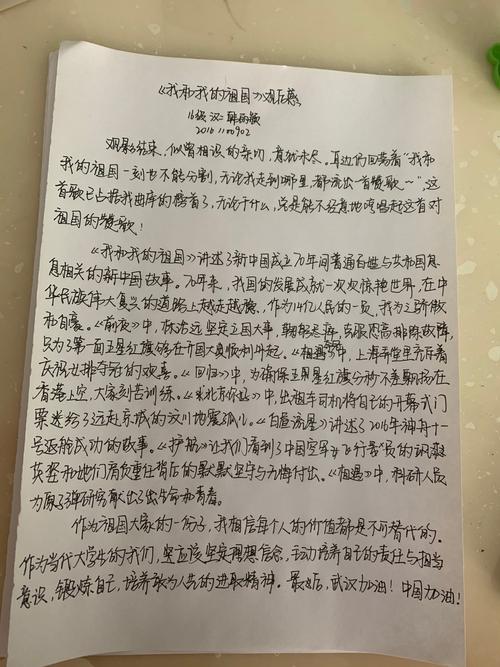 《我和我的祖国》观后感
16级 汉二 韩雨
2016110902
观影结束，似曾相识的亲切，意犹未尽。耳边仍回荡着“我和
我的祖国一刻也不能分割，无论我走到哪里，都流出一首赞歌～”，这
首歌已占据我曲库的榜首了，无论干什么，总是能不经意地哼唱起这首对
祖国的赞歌！
《我和我的祖国》讲述了新中国成立70年间普通百姓与共和国息
息相关的新中国故事。70年来，我国的发展成就一次次惊艳世界，在中
华民族伟大复兴的道路上越走越稳，作为14亿人民的一员，我为之骄傲
和自豪。《前夜》中，林治远坚定立国大事，克服恐高排除故障，
只为了第一面五星红旗能在开国大典顺利升起。《夺冠》中，上海弄堂里充斥着
庆祝女排夺冠的欢喜。《回归》中，为确保五星红旗分秒不差飘扬在
香港上空，大家刻苦训练。《北京你好》中，出租车司机将自己的开幕式门
票送给了远赴京城的汶川地震孤儿。《白昼流星》讲述了2016年神舟十一
号返航成功的故事。《护航》让我们看到了中国空军女飞行员的飒爽
英姿和她们肩负重任背后的默默坚守与无悔付出。《相遇》中，科研人员
为原子弹研究献出了生命和青春。
作为祖国大家的一份子，我相信每个人的价值都是不可替代的。
作为当代大学生的我们，更应该坚定理想信念，主动培养自己的责任与担当
意识，锻炼自己，培养敢为人先的进取精神。最后，武汉加油！中国加油！